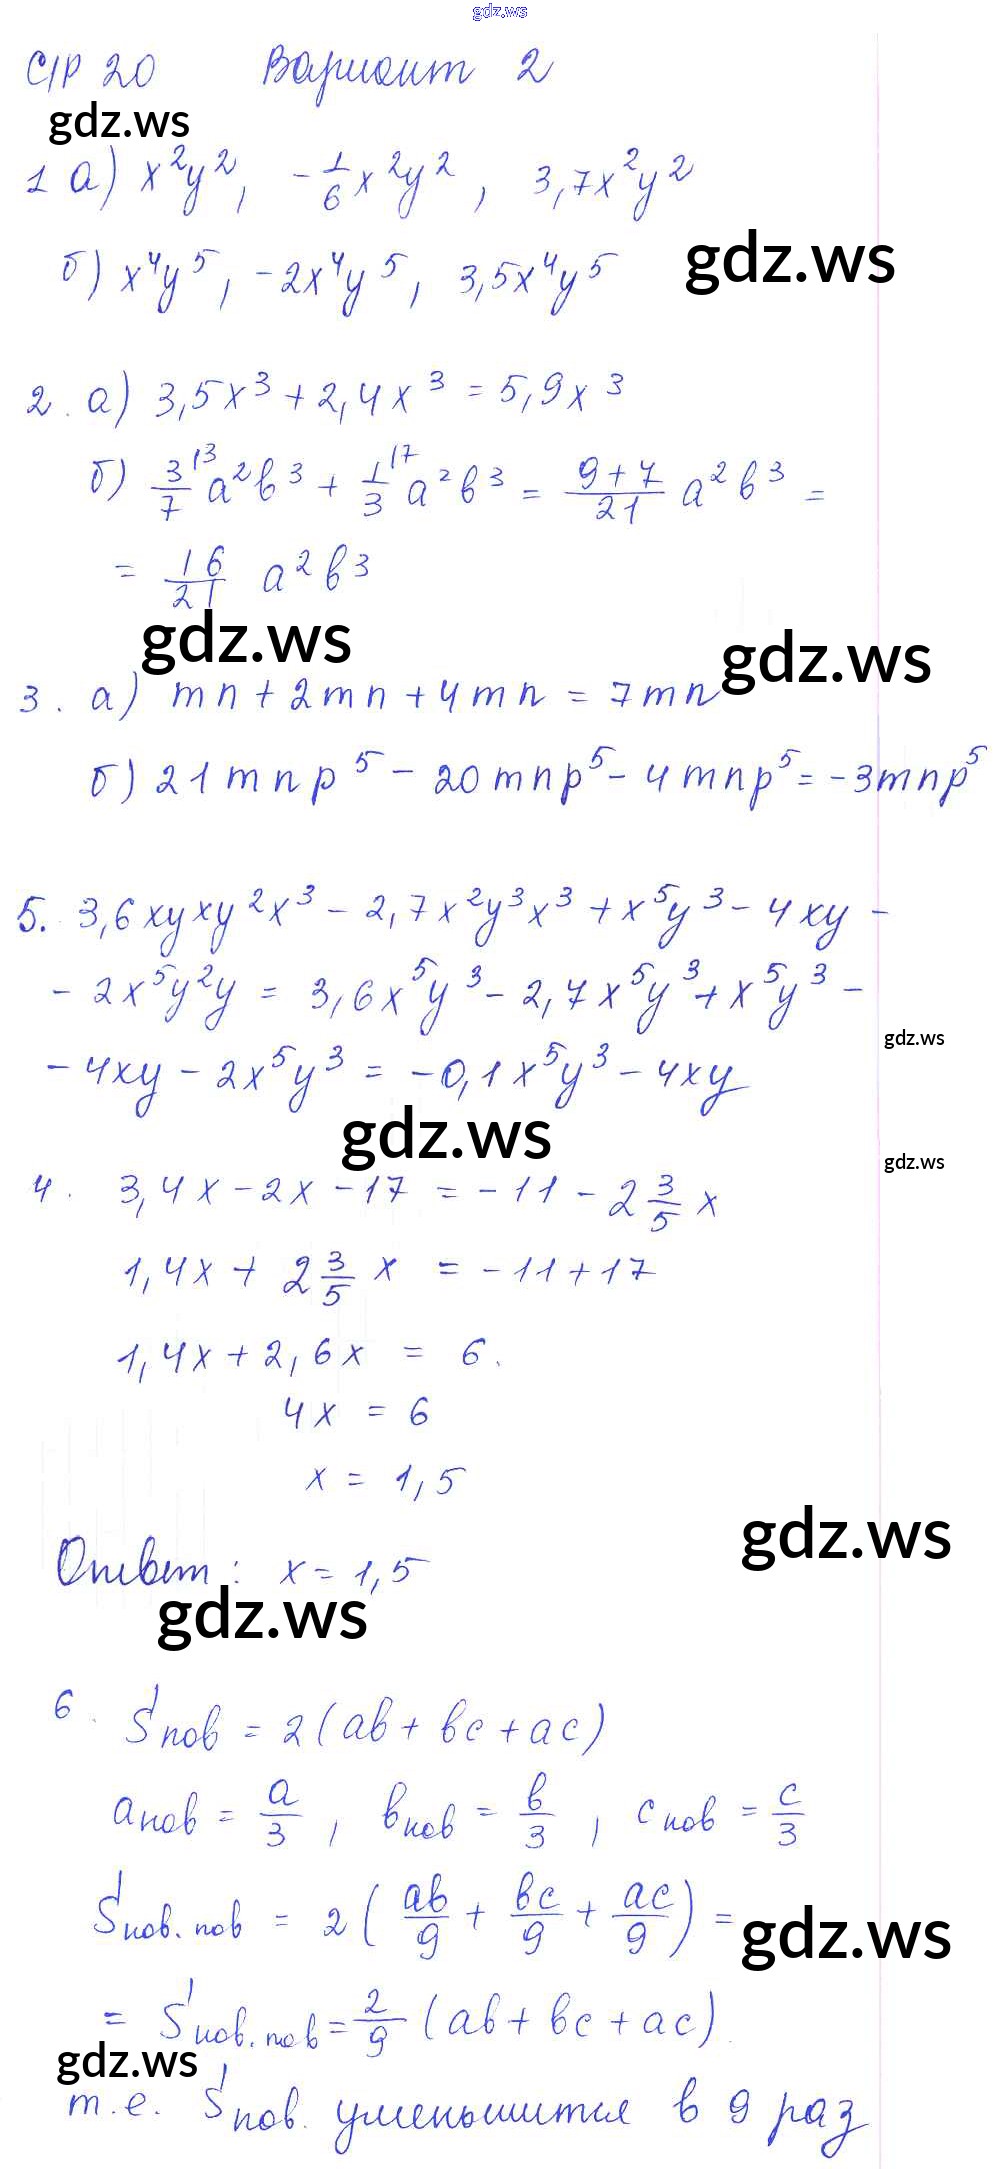 gdz.ws
С/Р 20 Вариант 2
gdz.ws
1 а) x²y², -1/6 x²y², 3,7x²y²
gdz.ws
б) x⁴y⁵, -2x⁴y⁵, 3,5x⁴y⁵
2. а) 3,5x³ + 2,4x³ = 5,9x³
б) 3/7 ⁽³ a²b³ + 1/3 ⁽⁷ a²b³ = (9+7)/21 a²b³ =
= 16/21 a²b³
gdz.ws gdz.ws
3. а) mn + 2mn + 4mn = 7mn
б) 21mnp⁵ - 20mnp⁵ - 4mnp⁵ = -3mnp⁵
5. 3,6xyxy²x³ - 2,7x²y³x³ + x⁵y³ - 4xy -
- 2x⁵y²y = 3,6x⁵y³ - 2,7x⁵y³ + x⁵y³ -
gdz.ws
- 4xy - 2x⁵y³ = -0,1x⁵y³ - 4xy
gdz.ws
gdz.ws
4. 3,4x - 2x - 17 = -11 - 2 3/5 x
1,4x + 2 3/5 x = -11 + 17
1,4x + 2,6x = 6.
4x = 6
x = 1,5
gdz.ws
Ответ: x = 1,5
gdz.ws
6. Sпов = 2(ab + bc + ac)
aнов = a/3, bнов = b/3, cнов = c/3
Sнов.пов = 2(ab/9 + bc/9 + ac/9) =
gdz.ws
= Sнов.пов = 2/9 (ab + bc + ac).
gdz.ws
т.е. Sпов. уменьшится в 9 раз